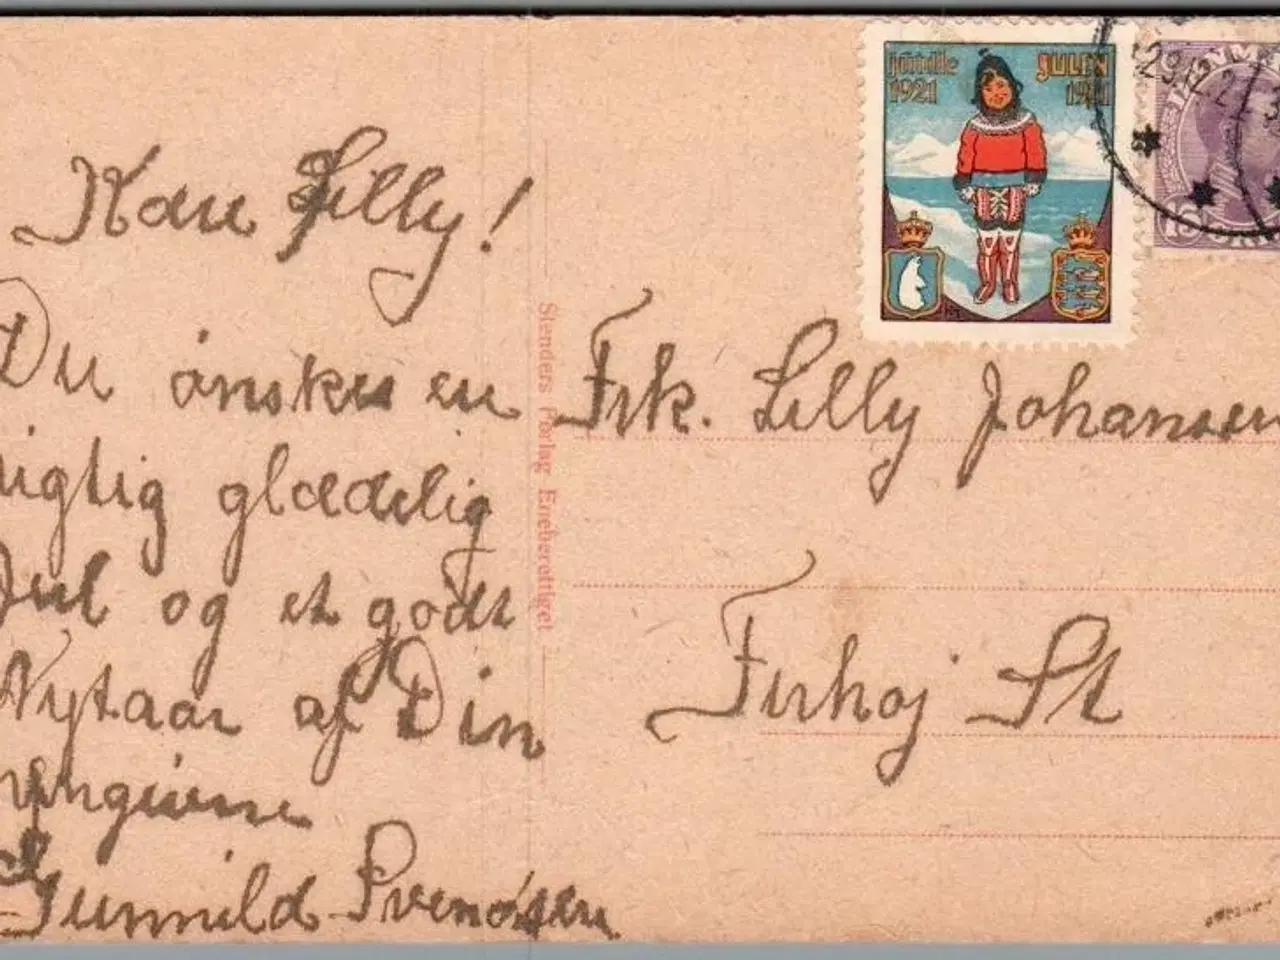 Kære Lilly!
Du ønskes en
rigtig glædelig
Jul og et godt
Nytaar af Din
hengivne
Gunnild Svendsen
Stenders Forlag Eneberettiget
jóvdle
1921
JULEN
1921
29.12.2
DANMARK
15 ØRE
Frk. Lilly Johansen
Firhøj St